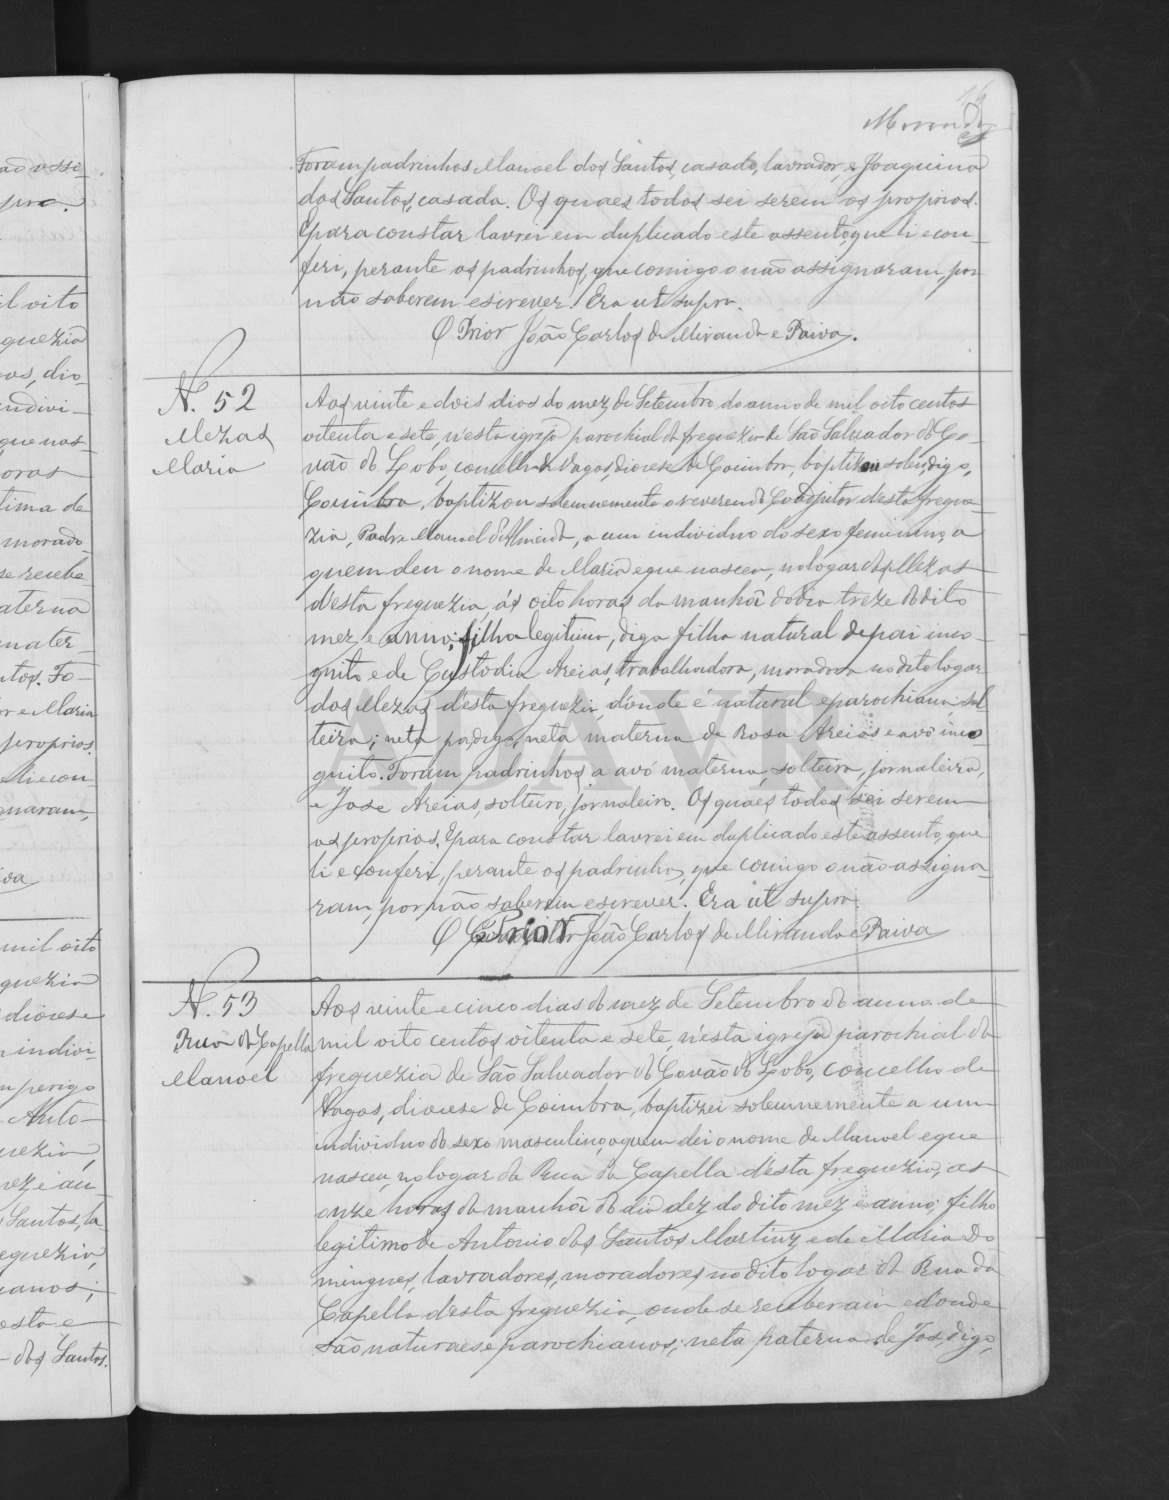 ão assi-
pra.
il oito
guezia
os, dio-
indivi-
que nas-
oras
tima de
morado-
se recebe
aterna
mater-
tos. Fo-
r e Maria
proprios.
li e con-
gnaram,
iva
mil oito
guezia
diocese
indivi-
m perigo
Anto-
uezia,
ez e an-
Santos, la-
eguezia,
ianos;
osta e
dos Santos.
16
Miranda
Foram padrinhos Manoel dos Santos, casado, lavrador, e Joaquina
dos Santos, casada. Os quaes todos sei serem os proprios.
E para constar lavrei em duplicado este assento, que li e con-
feri, perante os padrinhos, que comigo o não assignaram, por
não saberem escrever. Era ut supra.
O Prior João Carlos de Miranda e Paiva.
N. 52
Mezas
Maria
Aos vinte e dois dias do mez de Setembro do anno de mil oito centos
oitenta e sete, n'esta igreja parochial da freguezia de São Salvador do Co-
vão do Lobo, concelho de Vagos, diocese de Coimbra, baptizou solen, digo,
Coimbra, baptizou solemnemente o reverendo Coadjutor d'esta fregue-
zia, Padre Manoel d'Almeida, a um individuo do sexo feminino, a
quem deu o nome de Maria e que nasceu, no logar das Mezas
d'esta freguezia, ás oito horas da manhã do dia treze do dito
mez e anno; filha legitima, digo filha natural de pai inco-
gnito e de Custodia Areias, trabalhadora, moradora no dito logar
das Mezas d'esta freguezia, d'onde é natural e parochiana, sol-
teira; neta pa, digo, neta materna de Rosa Areias e avô inco-
gnito. Foram padrinhos a avó materna, solteira, jornaleira,
e José Areias, solteiro, jornaleiro. Os quaes todos sei serem
os proprios. E para constar lavrei em duplicado este assento, que
li e conferi, perante os padrinhos, que comigo o não assigna-
ram, por não saberem escrever. Era ut supra.
O Prior João Carlos de Miranda e Paiva
N. 53
Rua da Capella
Manoel
Aos vinte e cinco dias do mez de Setembro do anno de
mil oito centos oitenta e sete, n'esta igreja parochial da
freguezia de São Salvador do Covão do Lobo, concelho de
Vagos, diocese de Coimbra, baptizei solemnemente a um
individuo do sexo masculino, a quem dei o nome de Manoel e que
nasceu, no logar da Rua da Capella d'esta freguezia, as
onze horas da manhã do dia dez do dito mez e anno; filho
legitimo de Antonio dos Santos Martins e de Maria Do-
mingues, lavradores, moradores no dito logar da Rua da
Capella d'esta freguezia, onde se receberam e d'onde
são naturaes e parochianos; neta paterna de Jos, digo,
ADAVR